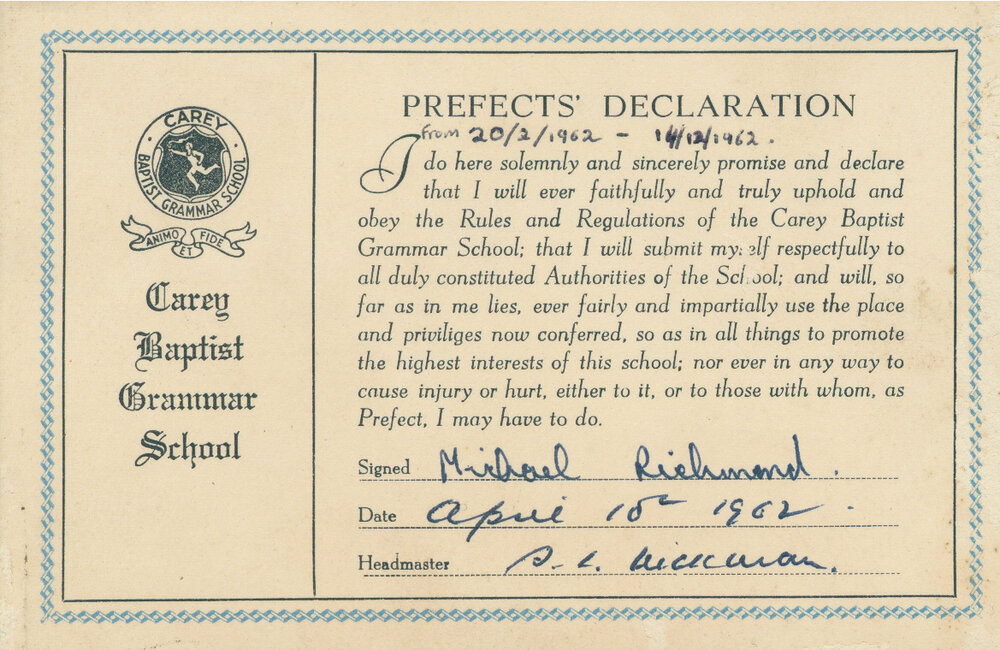 CAREY
BAPTIST GRAMMAR SCHOOL
ANIMO ET FIDE
Carey
Baptist
Grammar
School
PREFECTS' DECLARATION
From 20/2/1962 - 14/12/1962.
I do here solemnly and sincerely promise and declare
that I will ever faithfully and truly uphold and
obey the Rules and Regulations of the Carey Baptist
Grammar School; that I will submit myself respectfully to
all duly constituted Authorities of the School; and will, so
far as in me lies, ever fairly and impartially use the place
and priviliges now conferred, so as in all things to promote
the highest interests of this school; nor ever in any way to
cause injury or hurt, either to it, or to those with whom, as
Prefect, I may have to do.
Signed Michael Richmond.
Date April 1962.
Headmaster S. L. Hickman.